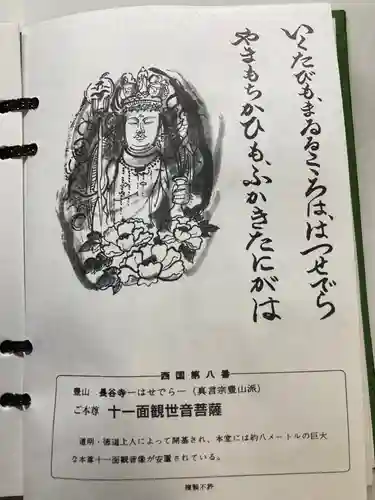 いくたびも、まゐるこころは、はつせでら
やまもちかひも、ふかきたにがは
西国第八番
豊山 長谷寺―はせでら―(真言宗豊山派)
ご本尊 十一面観世音菩薩
道明・徳道上人によって開基され、本堂には約八メートルの巨大
な本尊十一面観音像が安置されている。
複製不許